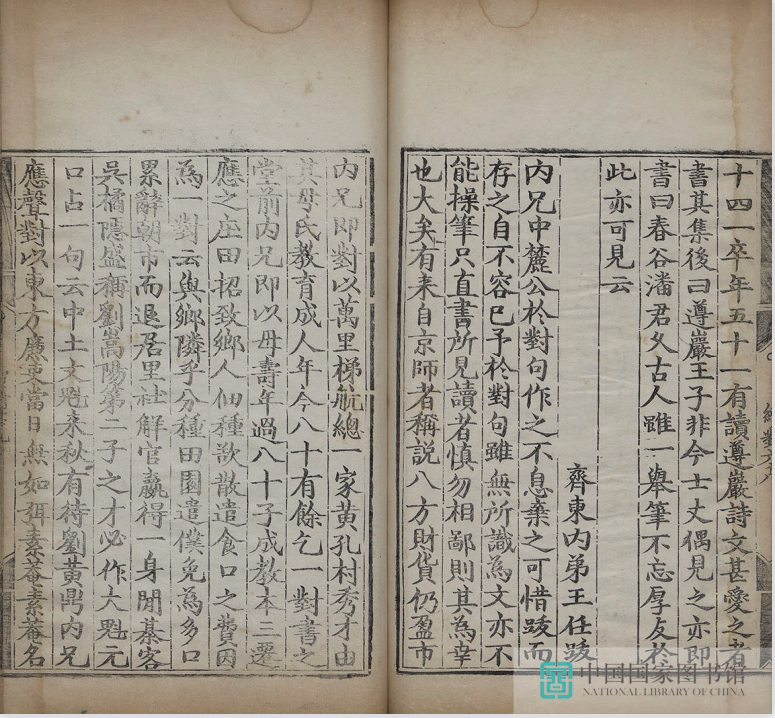 十四一卒年五十一有讀遵巖詩文甚愛之者
書其集後曰遵巖王子非今士丈偶見之亦即
書曰春谷潘君夊古人雖一舉筆不忘厚友於
此亦可見云
齊東內弟王任跋
內兄中麓公於對句作之不息棄之可惜跋而
存之自不容已予於對句雖無所識為文亦不
能操筆只直書所見讀者慎勿相鄙則其為幸
也大矣有来自京師者稱說八方財貨仍盈市
內兄即對以萬里梯航總一家黄孔村秀才由
其母氏教育成人年今八十有餘乞一對書之
堂前內兄即以母壽年過八十子成教本三遷
應之庄田招致鄉人佃種歉散遣食口之費因
為一對云與鄉隣乎分種田園遣僕免為多口
累辭朝市而退居里社解官贏得一身閒碁客
吳橘隱盛稱劉嵩陽第二子之才必作大魁元
口占一句云中土文魁来秋有待劉黄鼎內兄
應聲對以東方廉吏當日無如弭素菴素菴名
中国国家图书馆
NATIONAL LIBRARY OF CHINA